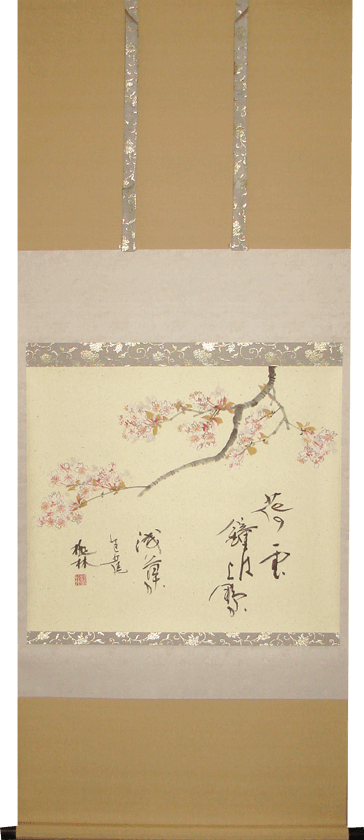 花の雲
鐘は上野か
浅草か
桃林